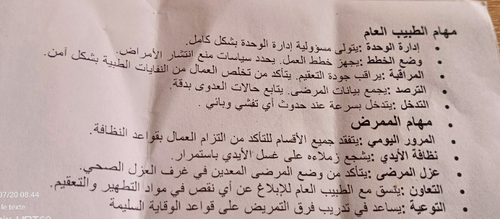 مهام الطبيب العام
• إدارة الوحدة :يتولى مسؤولية إدارة الوحدة بشكل كامل.
• وضع الخطط :يجهز خطط العمل. يحدد سياسات منع انتشار الأمراض.
• المراقبة :يراقب جودة التعقيم. يتأكد من تخلص العمال من النفايات الطبية بشكل آمن.
• الترصد :يجمع بيانات المرضى. يتابع حالات العدوى بدقة.
• التدخل :يتدخل بسرعة عند حدوث أي تفشي وبائي .
• مهام الممرض
• المرور اليومي :يتفقد جميع الأقسام للتأكد من التزام العمال بقواعد النظافة.
• نظافة الأيدي :يشجع زملاءه على غسل الأيدي باستمرار.
• عزل المرضى :يتأكد من وضع المرضى المعدين في غرف العزل الصحي.
• التعاون :ينسق مع الطبيب العام للإبلاغ عن أي نقص في مواد التطهير والتعقيم.
• التوعية :يساعد في تدريب فرق التمريض على قواعد الوقاية السليمة
07/20 08:44